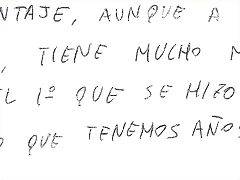 NTAJE, AUNQUE A
, TIENE MUCHO M
EL 1º QUE SE HIZO
O QUE TENEMOS AÑOS